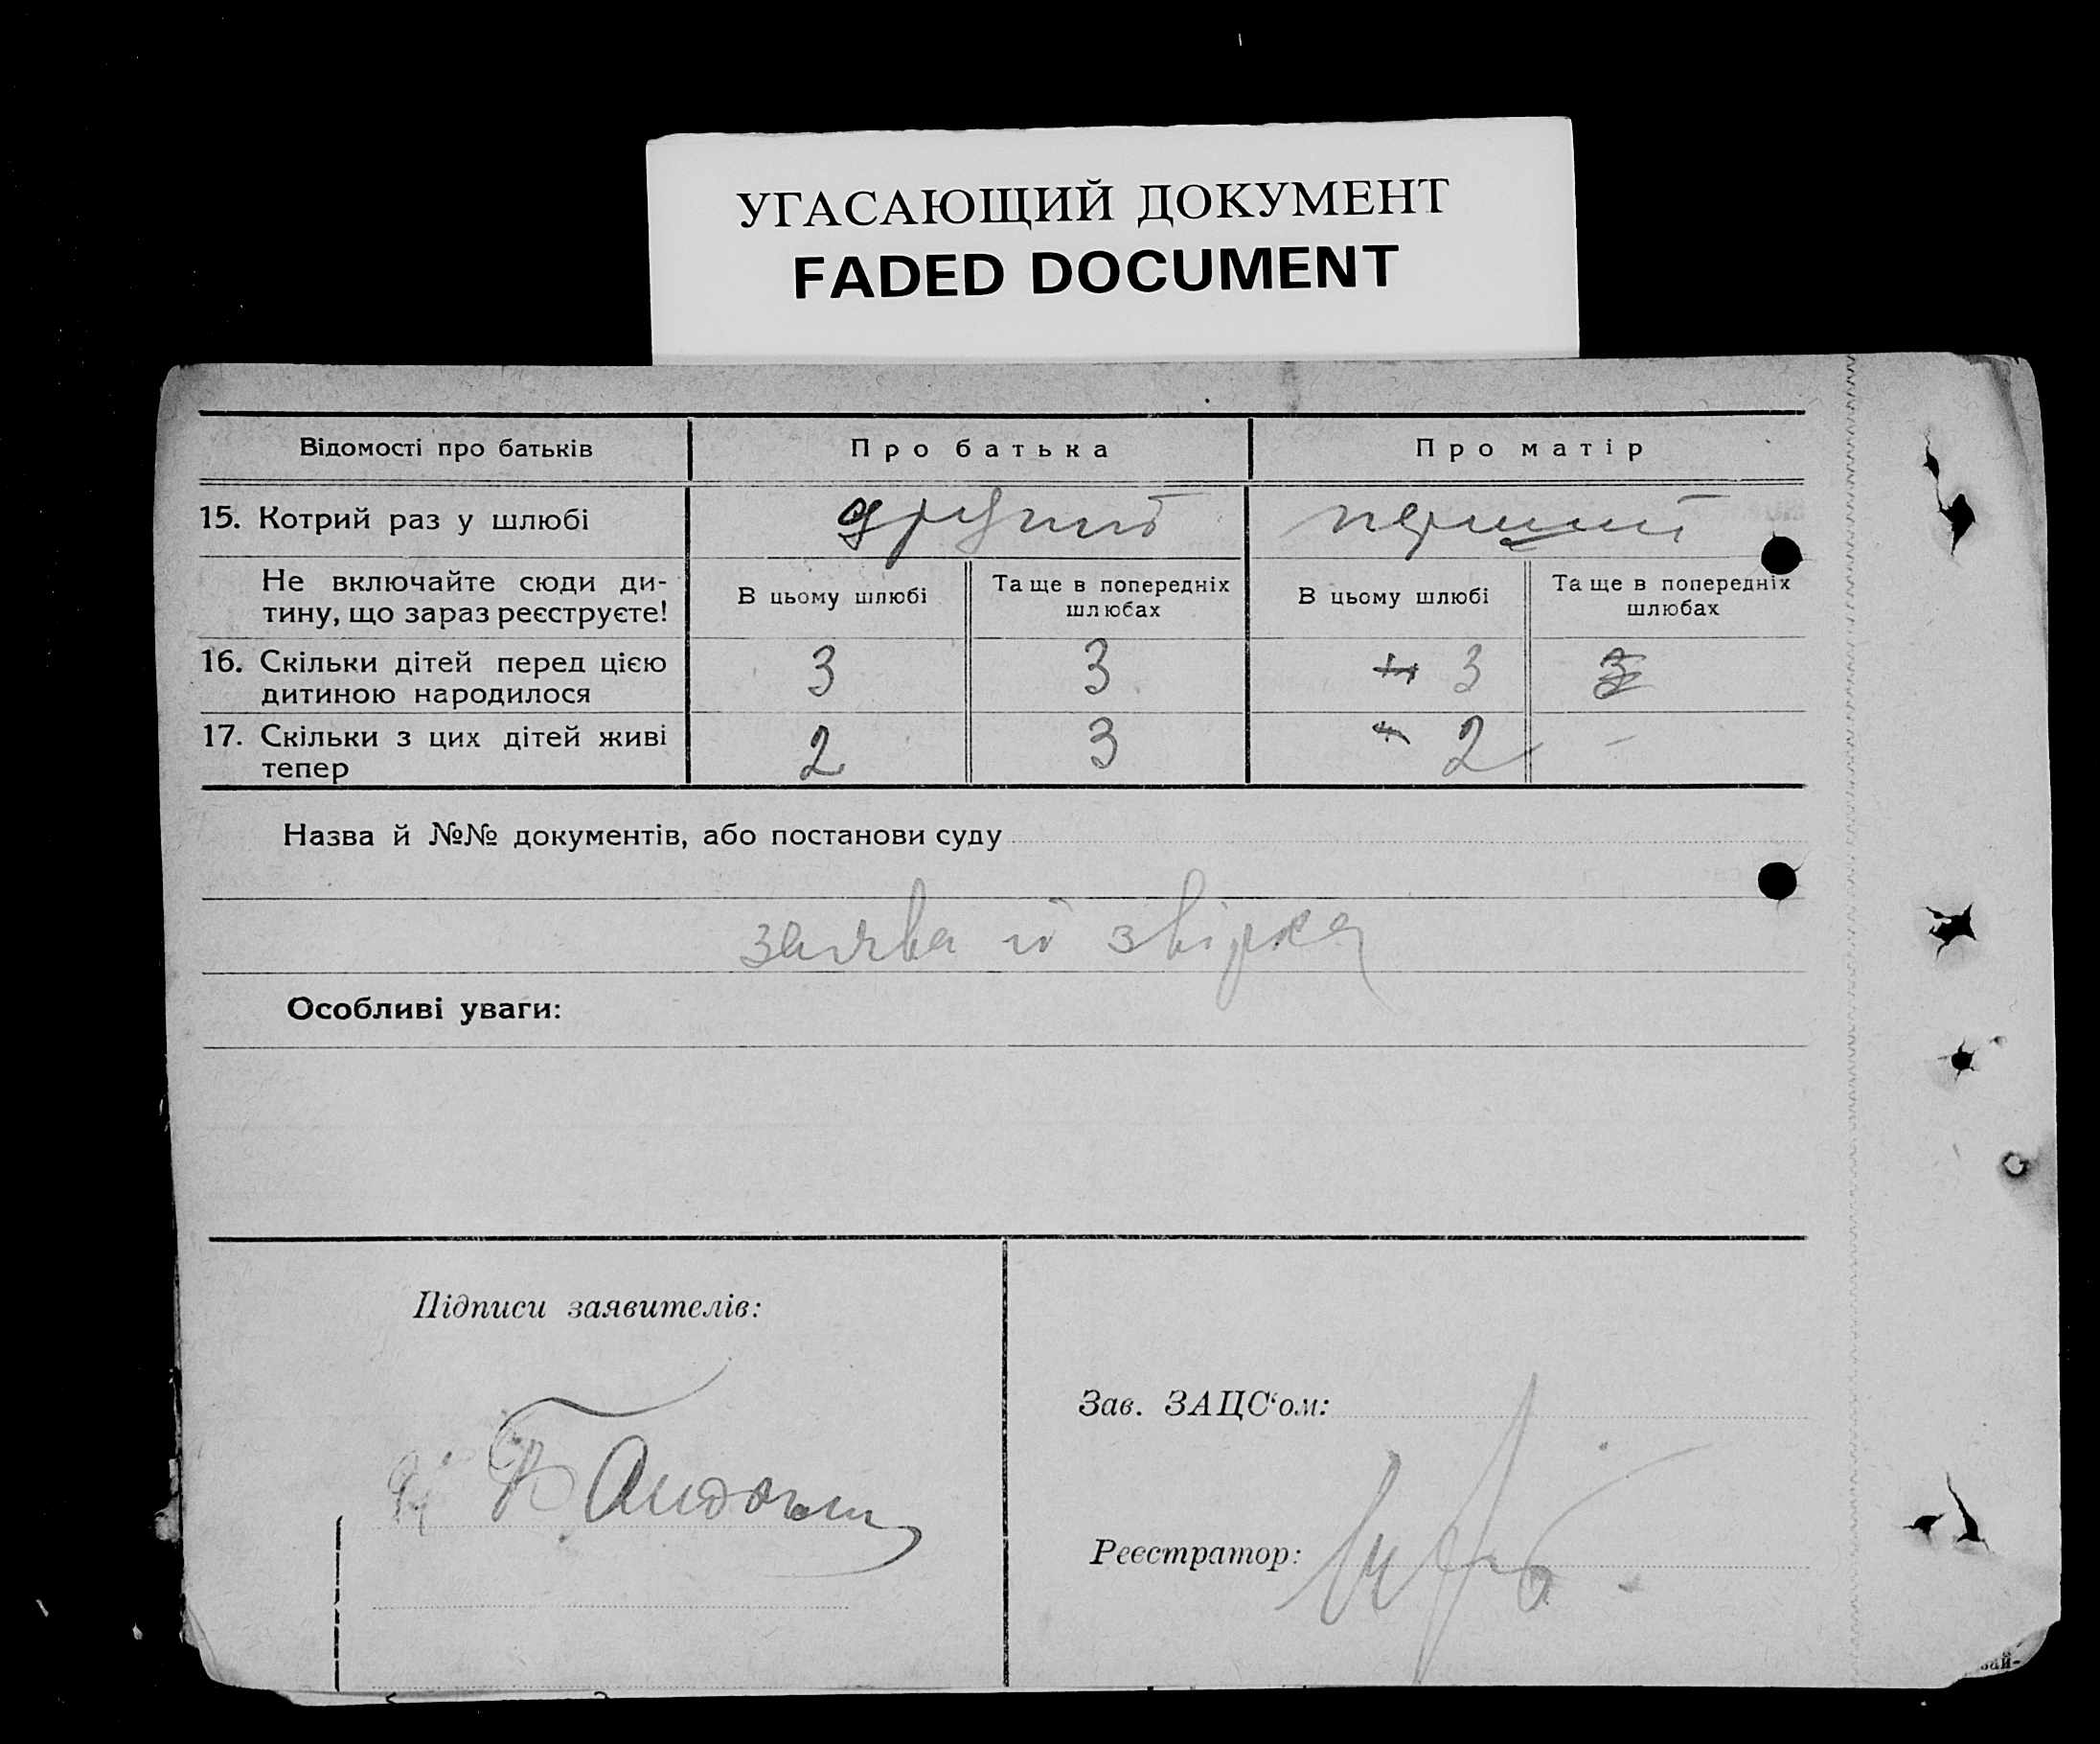 УГАСАЮЩИЙ ДОКУМЕНТ
FADED DOCUMENT
Відомості про батьків
Про батька
Про матір
15. Котрий раз у шлюбі
другий
перший
Не включайте сюди ди-
тину, що зараз реєструєте!
В цьому шлюбі
Та ще в попередніх
шлюбах
В цьому шлюбі
Та ще в попередніх
шлюбах
16. Скільки дітей перед цією
дитиною народилося
3
3
4 3
3
17. Скільки з цих дітей живі
тепер
2
3
2
–
Назва й №№ документів, або постанови суду
заява й звірка
Особливі уваги:
Підписи заявителів:
Зав. ЗАЦС‘ом:
Реєстратор: